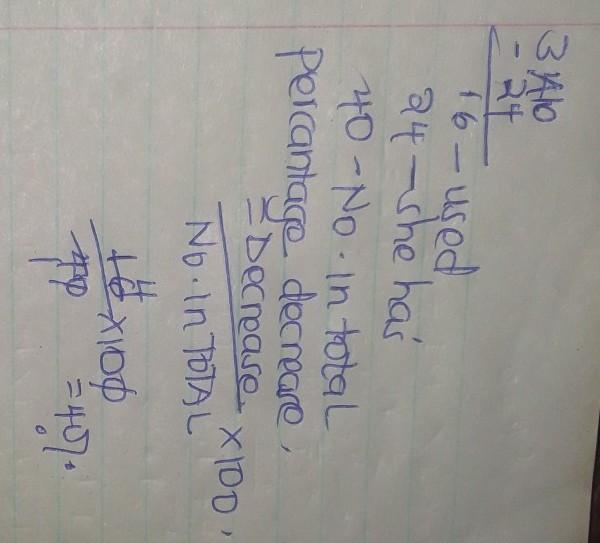 3 40
- 24
16 - used
24 - she has
40 - No. In total
Percantage decrease.
= Decrease
No. In TOTAL × 100.
16 4
40 × 100
= 40%.